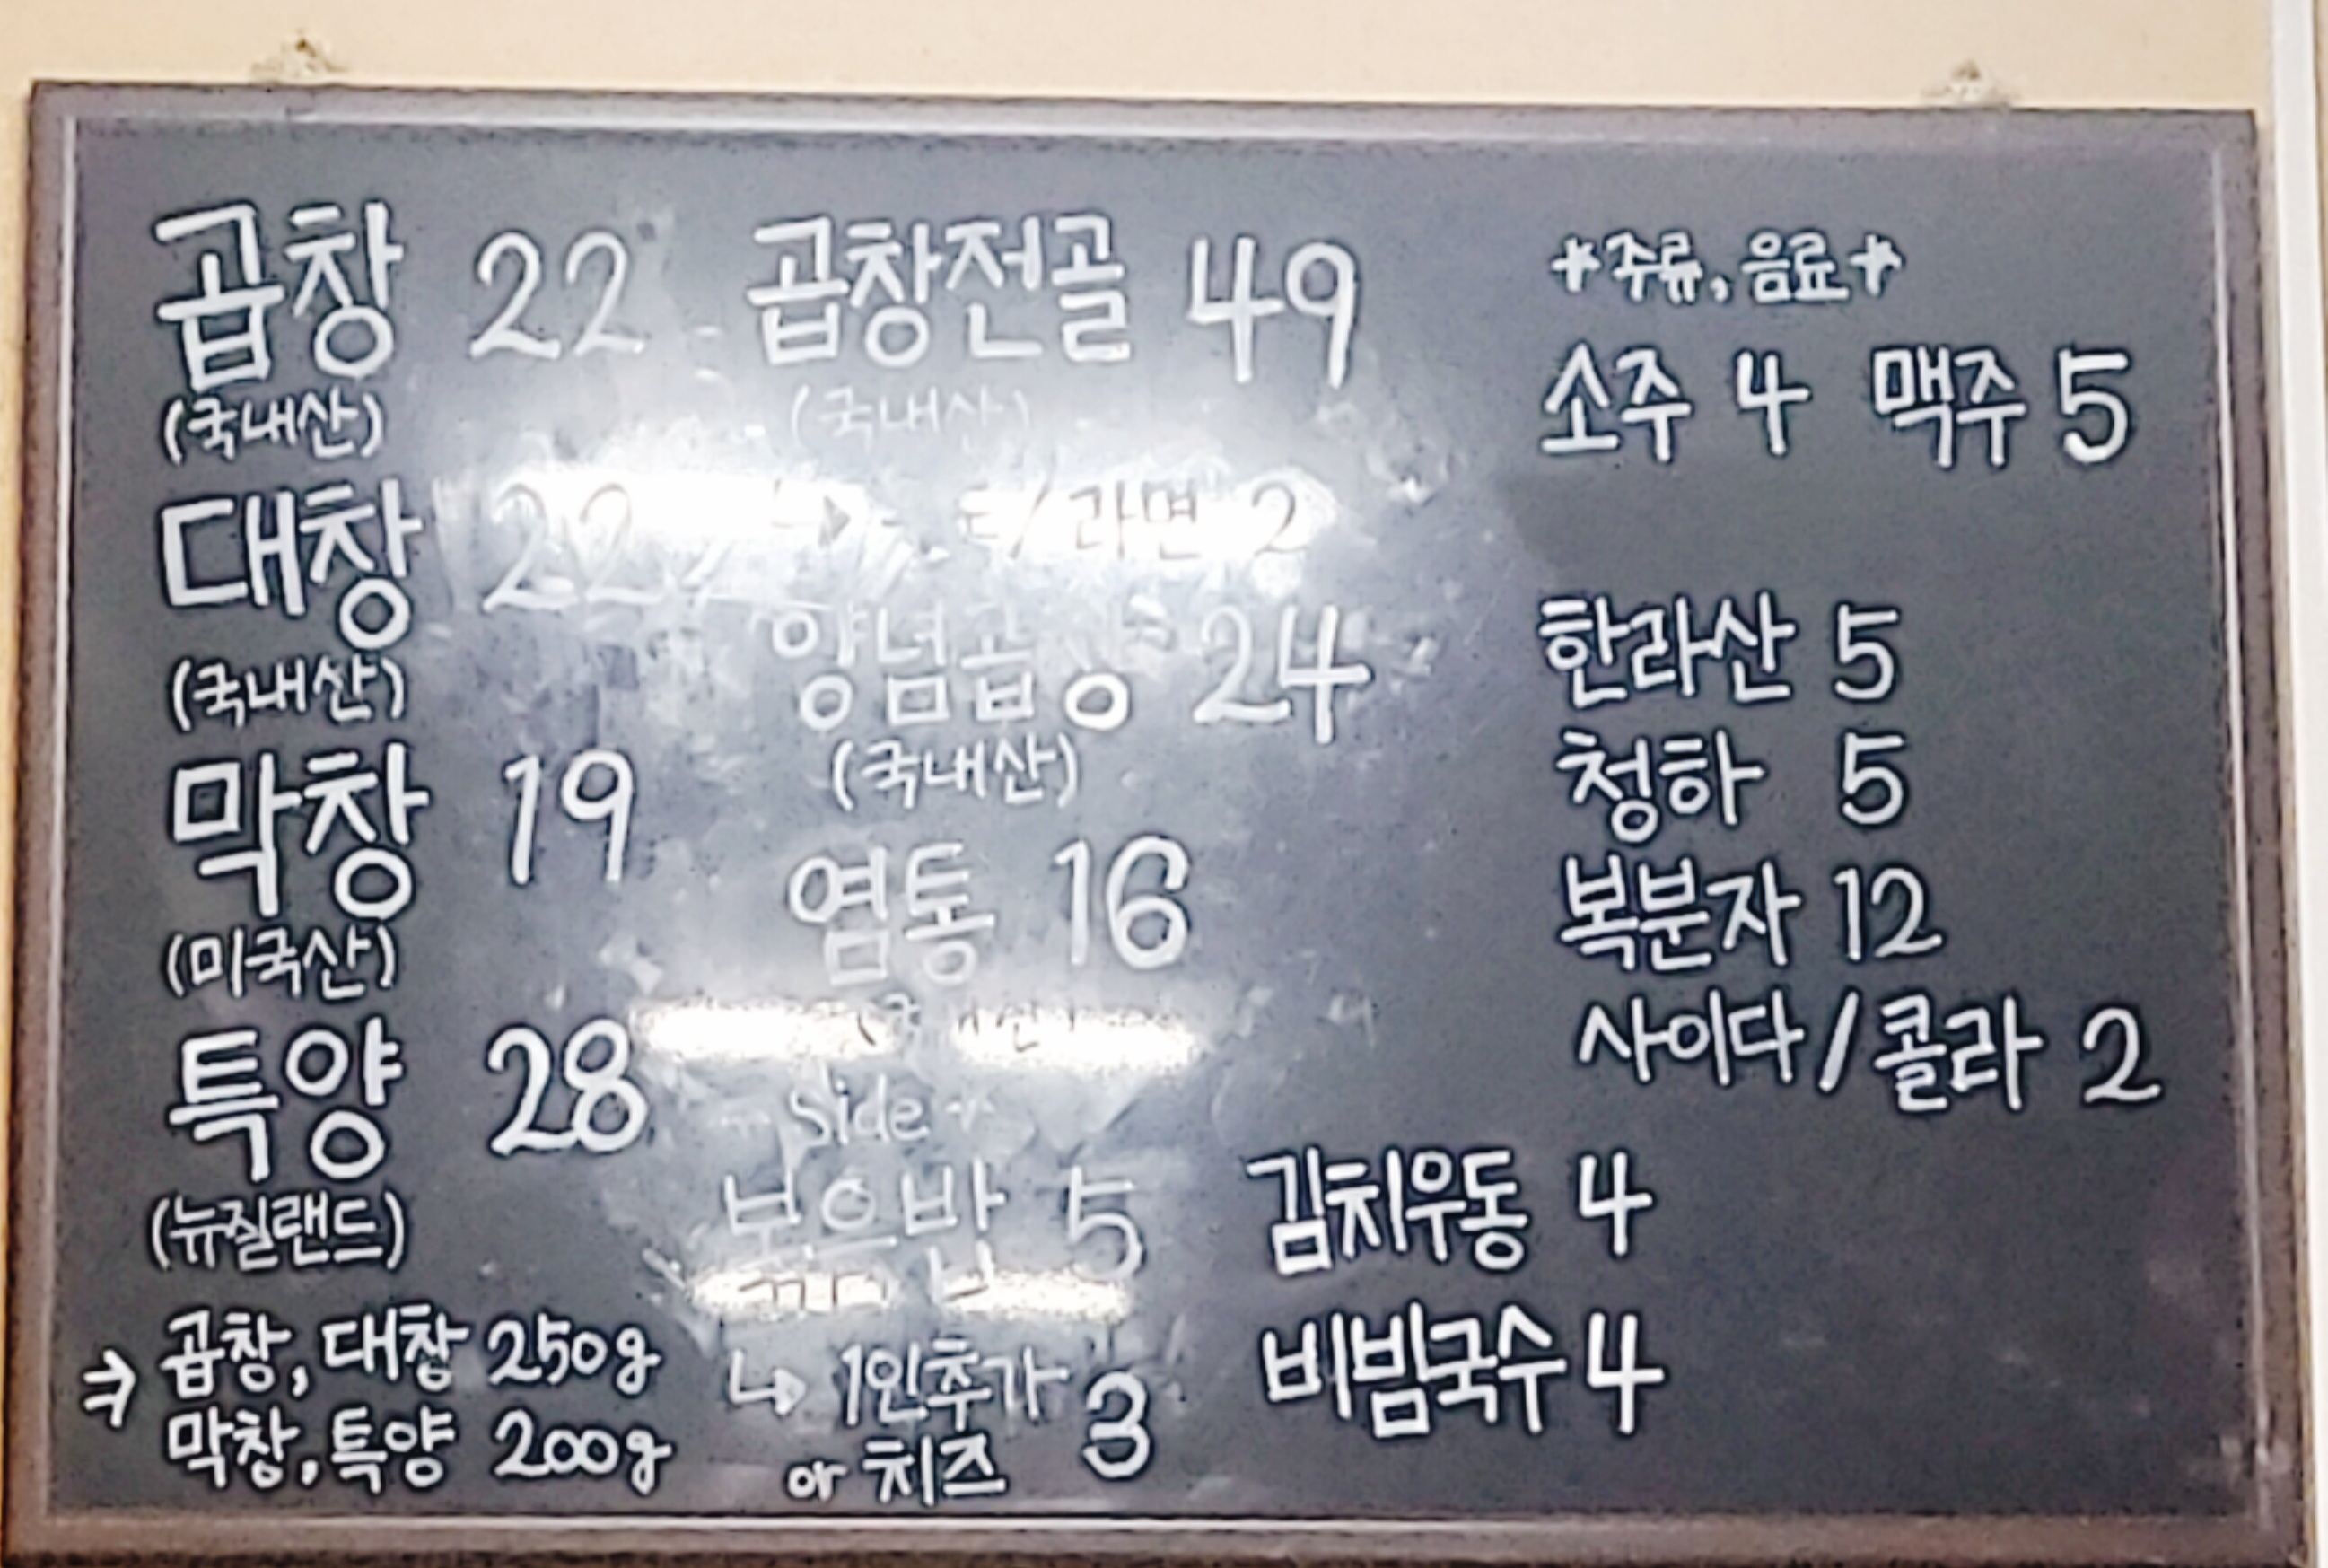 곱창 22
(국내산)
대창 22
(국내산)
막창 19
(미국산)
특양 28
(뉴질랜드)
→ 곱창, 대창 250g
막창, 특양 200g
곱창전골 49
(국내산)
/라면 2
양념곱창 24
(국내산)
염통 16
Side *
볶음밥 5
↳ 1인추가 3
or 치즈
*주류, 음료*
소주 4 맥주 5
한라산 5
청하 5
복분자 12
사이다/콜라 2
김치우동 4
비빔국수 4